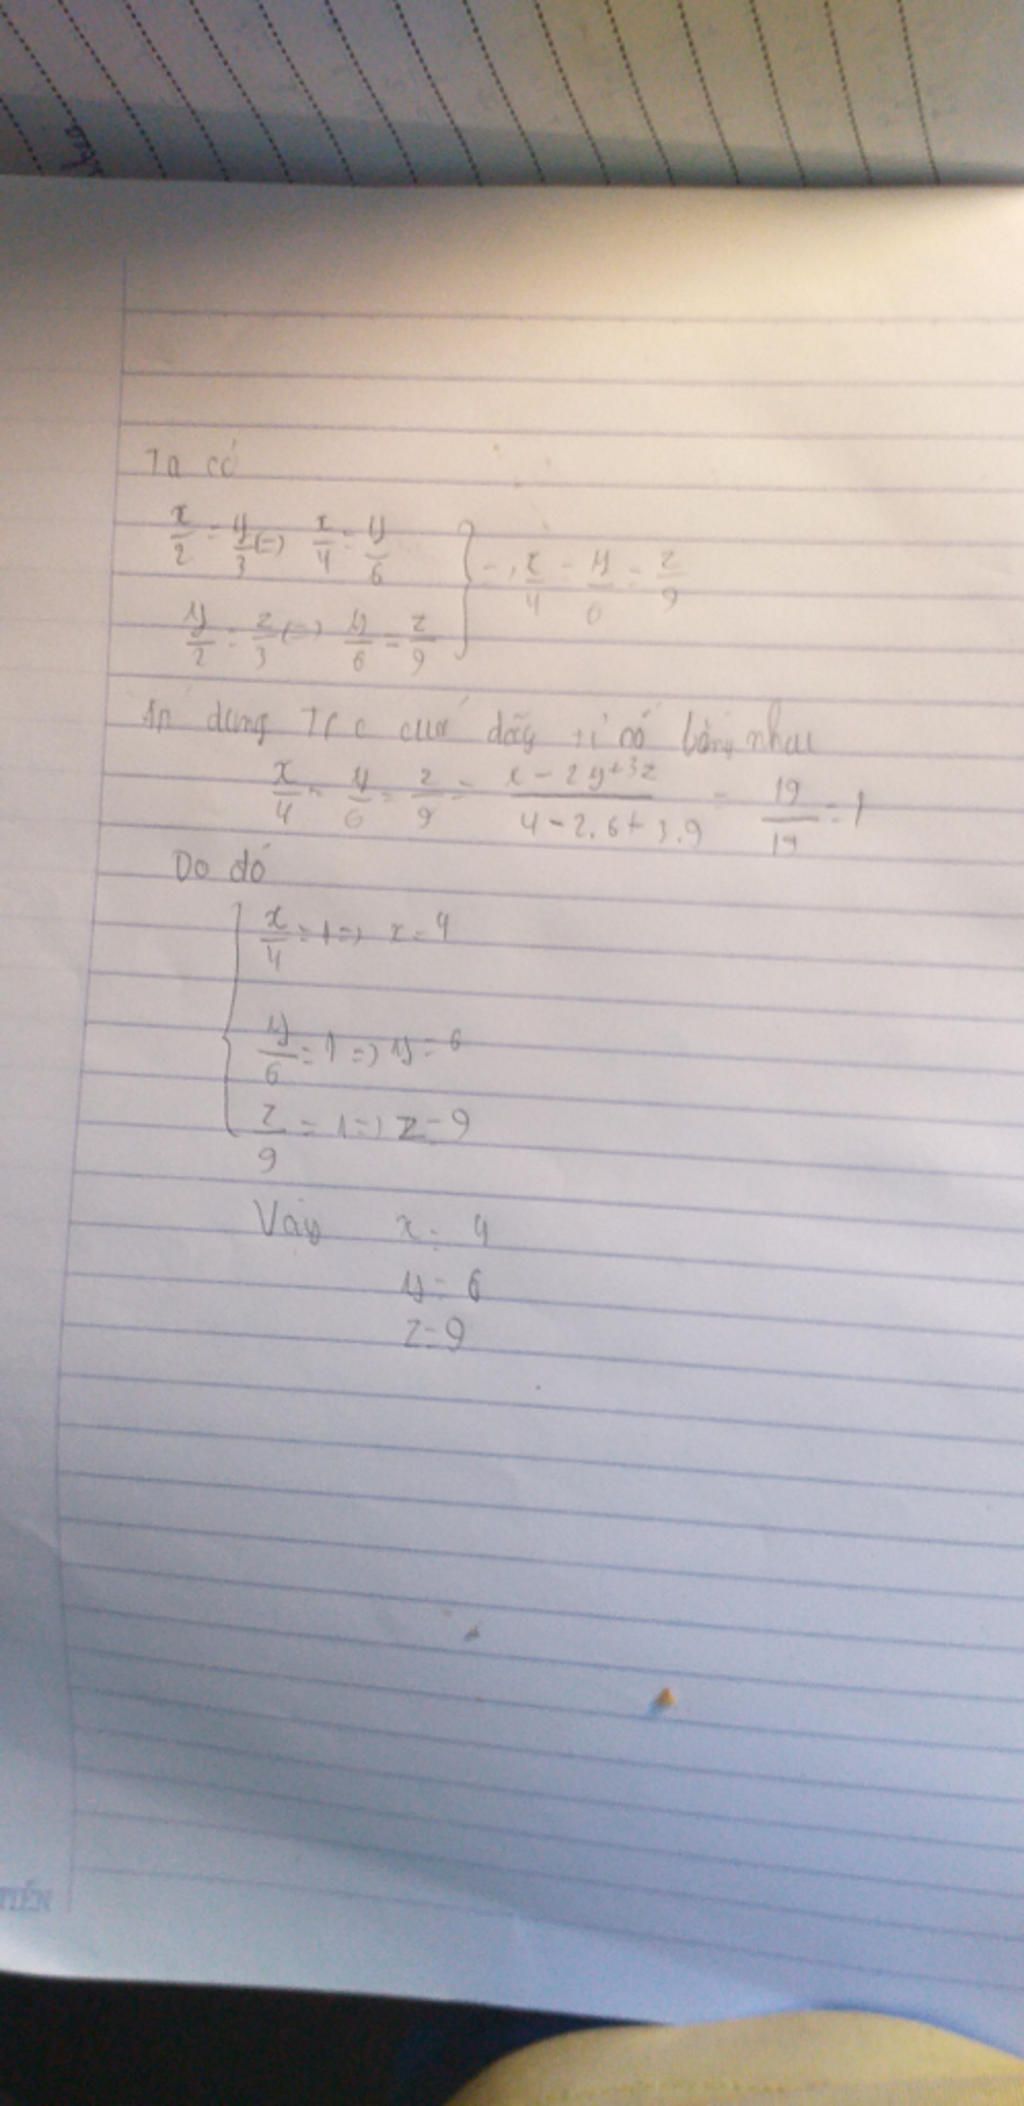 Ta có
x/2 = y/3 (=) x/4 = y/6
y/2 = z/3 (=) y/6 = z/9 } x/4 = y/6 = z/9
Áp dụng T/c của dãy tỉ số bằng nhau
x/4 = y/6 = z/9 = (x - 2y + 3z)/(4 - 2.6 + 3.9) = 19/19 = 1
Do đó
x/4 = 1 => x = 4
y/6 = 1 => y = 6
z/9 = 1 => z = 9
Vậy x = 4
y = 6
z = 9
TIẾN